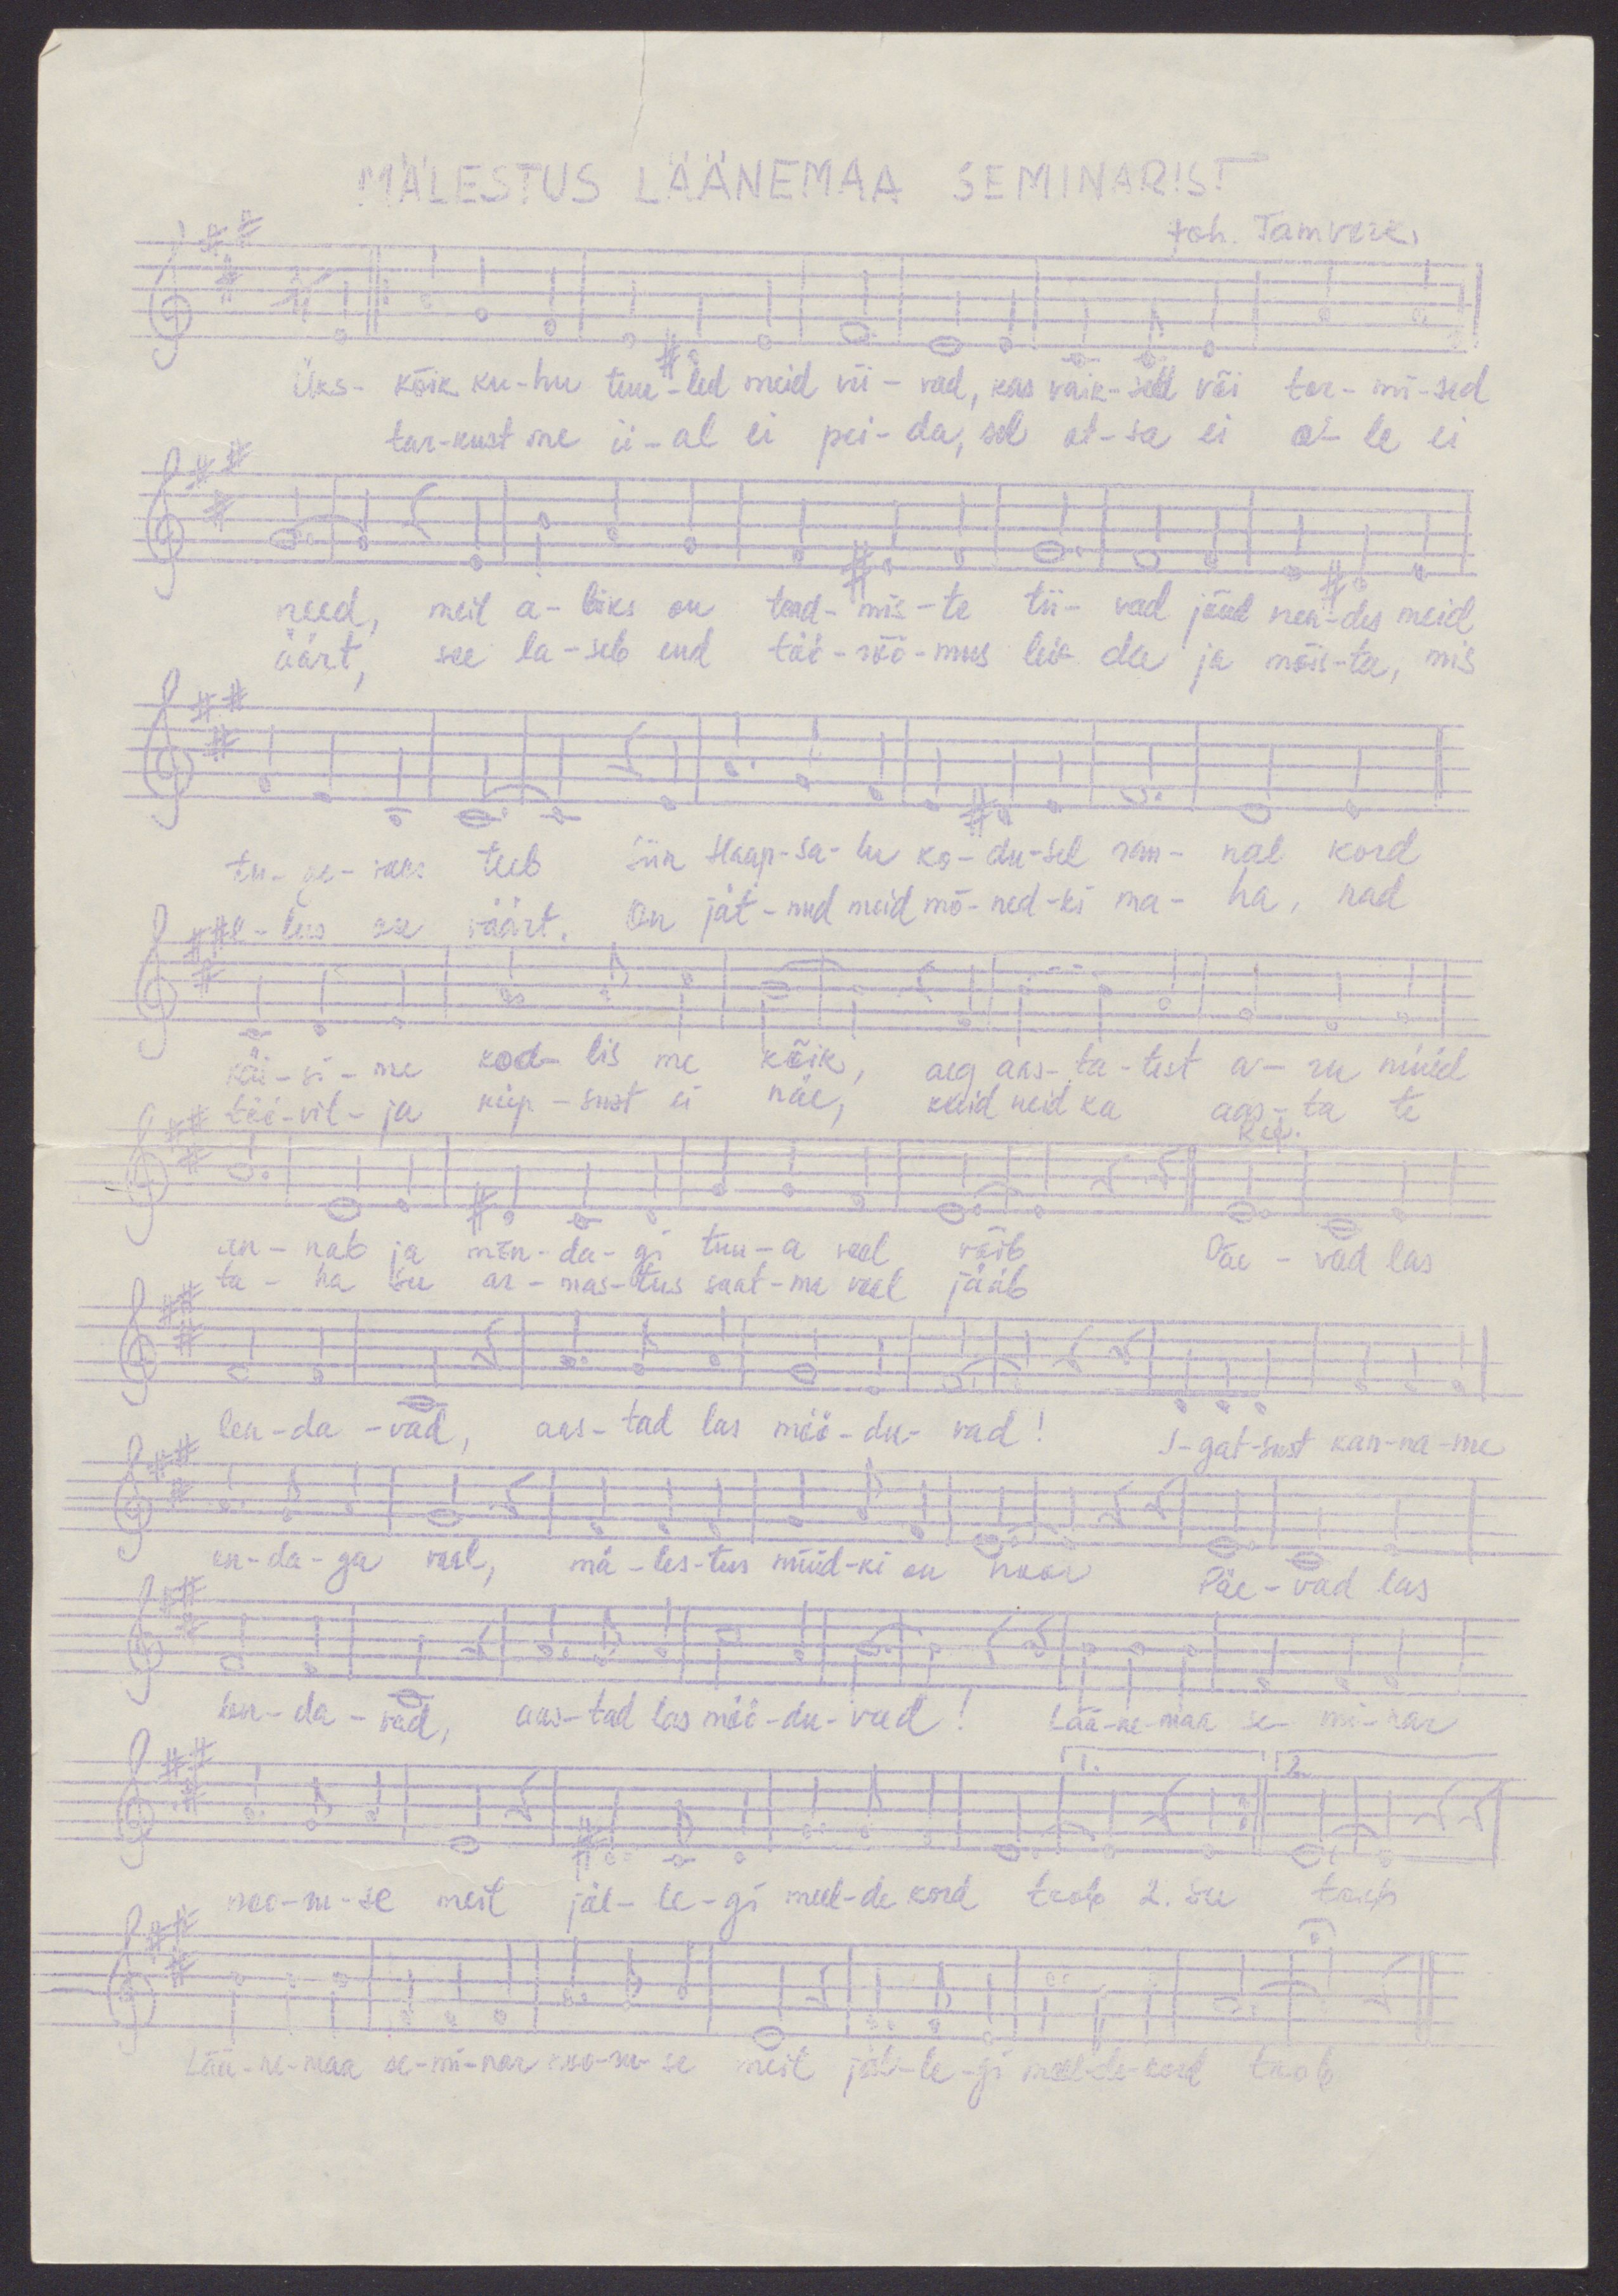 MÄLESTUS LÄÄNEMAA SEMINARIST
Joh. Tamverk,
Üks- kõik ku-hu tuu-led meid vii-vad, kas vaik-sed või tor-mi-sed
tar-kust me ii-al ei pei-da, sel ot-sa ei o-le ei
need, meil a-biks on tead-mis-te tii-vad jõud nen-des meid
äärt, see la-seb end töö-rõõ-mus lei-da ja mõis-ta, mis
tu-ge-vaks teeb Siin Haap-sa-lu ko-du-sel ran-nal kord
e-lus on väärt. On jät-nud meid mõ-ned-ki ma-ha, nad
käi-si-me kod-lis me kõik, aeg aas-ta-test a-ru nüüd
töö-vil-ja küp-sust ei näe, kuid neid ka aas-ta te
Ref.
an-nab ja mõn-da-gi tuu-a veel võib Päe-vad las
ta-ha su ar-mas-tus saat-ma veel jääb
len-da-vad, aas-tad las möö-du-vad! I-gat-sust kan-na-me
en-da-ga veel, mä-les-tus nüüd-ki on noor Päe-vad las
len-da-vad, aas-tad las möö-du-vad! Lää-ne-maa se-mi-nar
1. 2.
noo-ru-se meil jäl-le-gi meel-de kord toob 2. su toob
Lää-ne-maa se-mi-nar noo-ru-se meil jäl-le-gi meel-de-kord toob